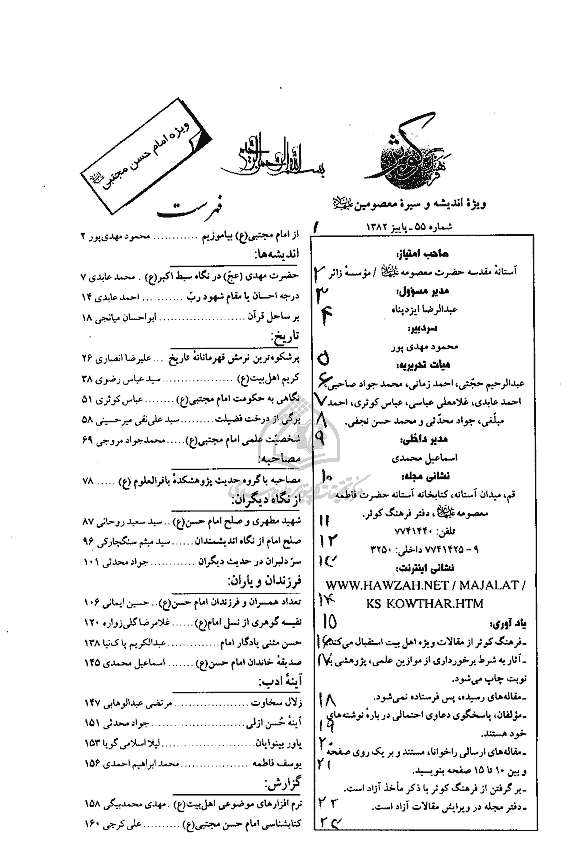 بسم الله الرحمن الرحیم
فرهنگ کوثر
ویژهٔ اندیشه و سیرهٔ معصومین
شماره ۵۵ - پاییز ۱۳۸۲
صاحب امتیاز:
آستانهٔ مقدسه حضرت معصومه / مؤسسهٔ زائر
مدیر مسؤول:
عبدالرضا ایزدپناه
سردبیر:
محمود مهدی پور
هیأت تحریریه:
عبدالرحیم حجّتی، احمد زمانی، محمد جواد صاحبی،
احمد عابدی، غلامعلی عباسی، عباس کوثری، احمد
مبلّغی، جواد محدّثی و محمد حسن نجفی.
مدیر داخلی:
اسماعیل محمدی
نشانی مجله:
قم، میدان آستانه، کتابخانه آستانه حضرت فاطمه
معصومه، دفتر فرهنگ کوثر.
تلفن: ۷۷۴۱۴۴۰
۹ - ۷۷۴۱۴۲۵ داخلی: ۳۲۵۰
نشانی اینترنت:
WWW.HAWZAH.NET / MAJALAT /
KS KOWTHAR.HTM
یاد آوری:
ـ فرهنگ کوثر از مقالات ویژه اهل بیت استقبال می‌کند.
ـ آثار به شرط برخورداری از موازین علمی، پژوهشی به
نوبت چاپ می‌شود.
ـ مقاله‌های رسیده، پس فرستاده نمی‌شود.
ـ مؤلفان، پاسخگوی دعاوی احتمالی در بارهٔ نوشته‌های
خود هستند.
ـ مقاله‌های ارسالی را خوانا، مستند و بر یک روی صفحه
و بین ۱۰ تا ۱۵ صفحه بنویسید.
ـ بر گرفتن از فرهنگ کوثر با ذکر مأخذ آزاد است.
ـ دفتر مجله در ویرایش مقالات آزاد است.
۱
۲
۳
۴
۵
۶
۷
۸
۹
۱۰
۱۱
۱۲
۱۳
۱۴
۱۵
۱۶
۱۷
۱۸
۱۹
۲۰
۲۱
۲۲
۲۳
ویژه امام حسن مجتبی
فهرست
از امام مجتبی(ع) بیاموزیم ............ محمود مهدی‌پور ۲
اندیشه‌ها:
حضرت مهدی (عج) در نگاه سبط اکبر(ع) . محمد عابدی ۷
درجه احسان یا مقام شهود ربّ .......... احمد عابدی ۱۴
بر ساحل قرآن .................. ابواحسان میانجی ۱۸
تاریخ:
پرشکوه‌ترین نرمش قهرمانانهٔ تاریخ ... علیرضا انصاری ۲۶
کریم اهل‌بیت(ع) ............... سید عباس رضوی ۳۸
نگاهی به حکومت امام مجتبی(ع) ...... عباس کوثری ۵۱
برگی از درخت فضیلت ...... سید علی‌نقی میرحسینی ۵۸
شخصیّت علمی امام مجتبی(ع) ..... محمدجواد مروجی ۶۹
مصاحبه:
مصاحبه با گروه حدیث پژوهشکدهٔ باقرالعلوم (ع) ..... ۷۸
از نگاه دیگران:
شهید مطهری و صلح امام حسن(ع) .. سید سعید روحانی ۸۷
صلح امام از نگاه اندیشمندان .... سید میثم سنگچارکی ۹۶
سرّ دلبران در حدیث دیگران ......... جواد محدثی ۱۰۱
فرزندان و یاران:
تعداد همسران و فرزندان امام حسن(ع) .. حسین ایمانی ۱۰۶
نفیسه گوهری از نسل امام(ع) ..... غلامرضا گلی‌زواره ۱۲۰
حسن مثنی یادگار امام ........... عبدالکریم پاک‌نیا ۱۳۸
صدیقهٔ خاندان امام حسن(ع) ....... اسماعیل محمدی ۱۴۵
آینهٔ ادب:
زلال سخاوت .............. مرتضی عبدالوهابی ۱۴۷
آینهٔ حُسن ازلی ................. جواد محدثی ۱۵۱
یاور بینوایان ................ لیلا اسلامی گویا ۱۵۳
یوسف فاطمه ............ محمد ابراهیم احمدی ۱۵۶
گزارش:
نرم افزارهای موضوعی اهل‌بیت(ع) . مهدی محمدبیگی ۱۵۸
کتابشناسی امام حسن مجتبی(ع) .......... علی کرجی ۱۶۰